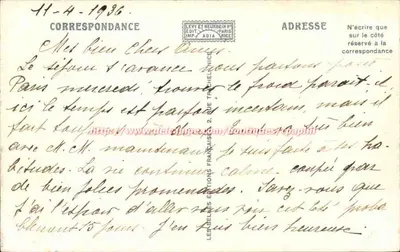 11-4-1936.
CORRESPONDANCE
LEVY ET NEURDEIN RÉUNIS
PARIS
IMP.
ADRESSE
N'écrire que
sur le côté
réservé à la
correspondance
Mes bien chers Amis.
Le séjour s'avance nous partons pour
Paris mercredi trouver le froid parait-il
ici le temps est parfois incertain, mais il
fait toujours bien
avec M.M. maintenant je suis faite à ses ha
bitudes. La vie continue calme, coupée par
de bien jolies promenades. Savez-vous que
j'ai l'espoir d'aller vous voir cet été proba
blement 15 jours. J'en suis bien heureuse.